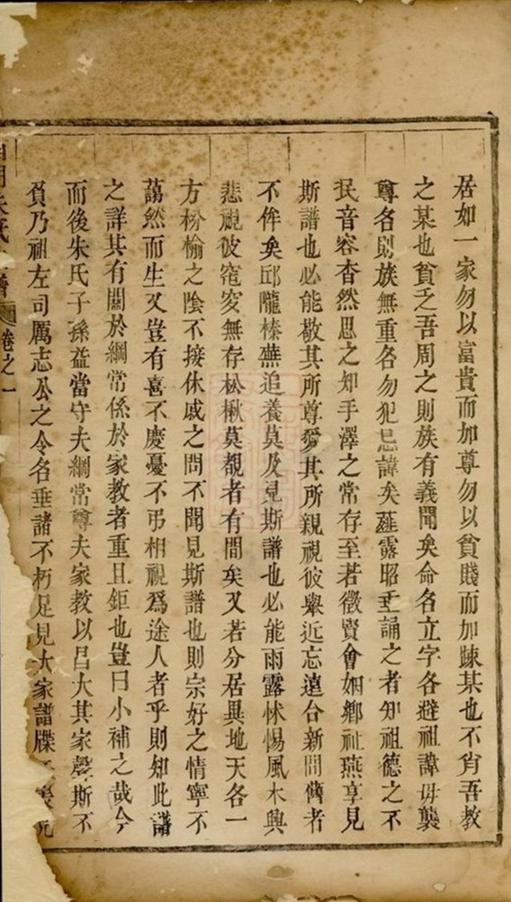 居如一家勿以富貴而加尊勿以貧賤而加踈某也不肖吾教
之某也貧乏吾周之則族有義聞矣命名立字各避祖諱毋襲
尊名則族無重各勿犯忌諱矣薤露昭垂誦之者知祖德之不
民音容杳然思之知手澤之常存至若徵賢會姻鄉祉燕享見
斯譜也必能敬其所尊愛其所親視彼舉近忘遠台新間舊者
不侔矣邱隴榛蕪追養莫及見斯譜也必能雨露怵惕風木興
悲視彼窀穸無存松楸莫覩者有間矣又若分居異地天各一
方枌榆之陰不接休戚之問不聞見斯譜也則宗好之情寧不
藹然而生又豈有喜不慶憂不弔相視爲途人者乎則知此譜
之詳其有關於綱常係於家教者重且鉅也豈曰小補之哉今
而後朱氏子孫益當守夫綱常尊夫家教以呂大其家聲斯不
負乃祖左司厲志公之令名垂諸不朽足見大家譜牒
朱氏 譜 卷之一